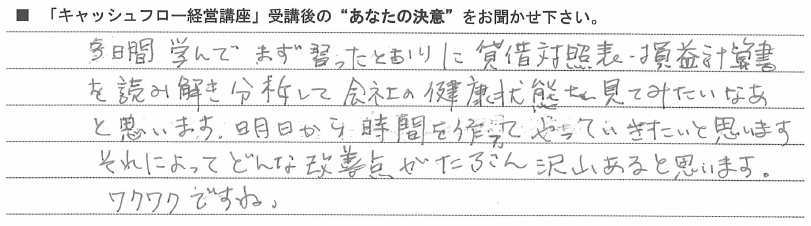 ■ 「キャッシュフロー経営講座」受講後の“あなたの決意”をお聞かせ下さい。
3日間 学んで まず 習ったとおりに 貸借対照表・損益計算書
を読み解き分析して会社の健康状態を見てみたいなあ
と思います。明日から時間を作ってやっていきたいと思います
それによってどんな改善点がたぶん沢山あると思います。
ワクワクですね。